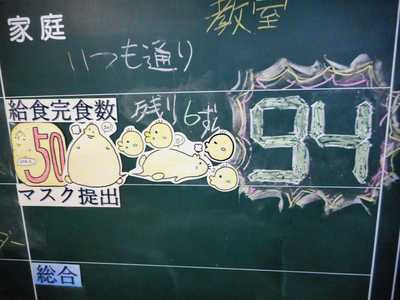 家庭
教室
いつも通り
給食完食数
50
残り6ずん
94
マスク提出
総合